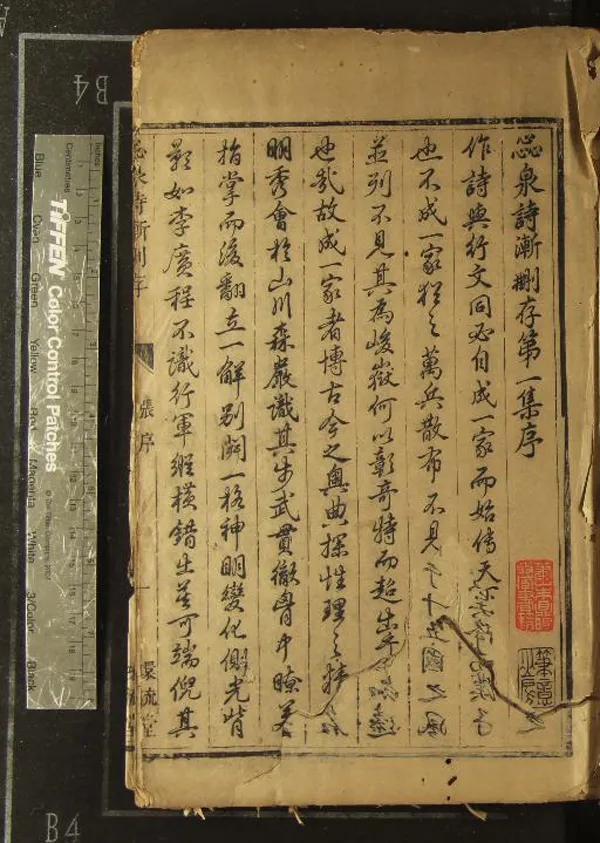 蕊泉詩漸刪存第一集序
作詩與行文同必自成一家而始傳天
也不成一家猶之萬兵散布不見
並別不見其為峻嶽何以彰奇特而超出乎
也哉故成一家者博古今之奧典探性理之
明秀會於山川森嚴識其步武貫徹胷中瞭若
指掌而後翻立一解別闢一格神明變化側光背
影如李廣程不識行軍縱橫錯出莫可端倪其
張序
一
環流堂
TIFFEN Color Control Patches
Blue
Cyan
Green
Yellow
Red
Magenta
White
3/Color
Black
Centimetres
Inches
B4
B4